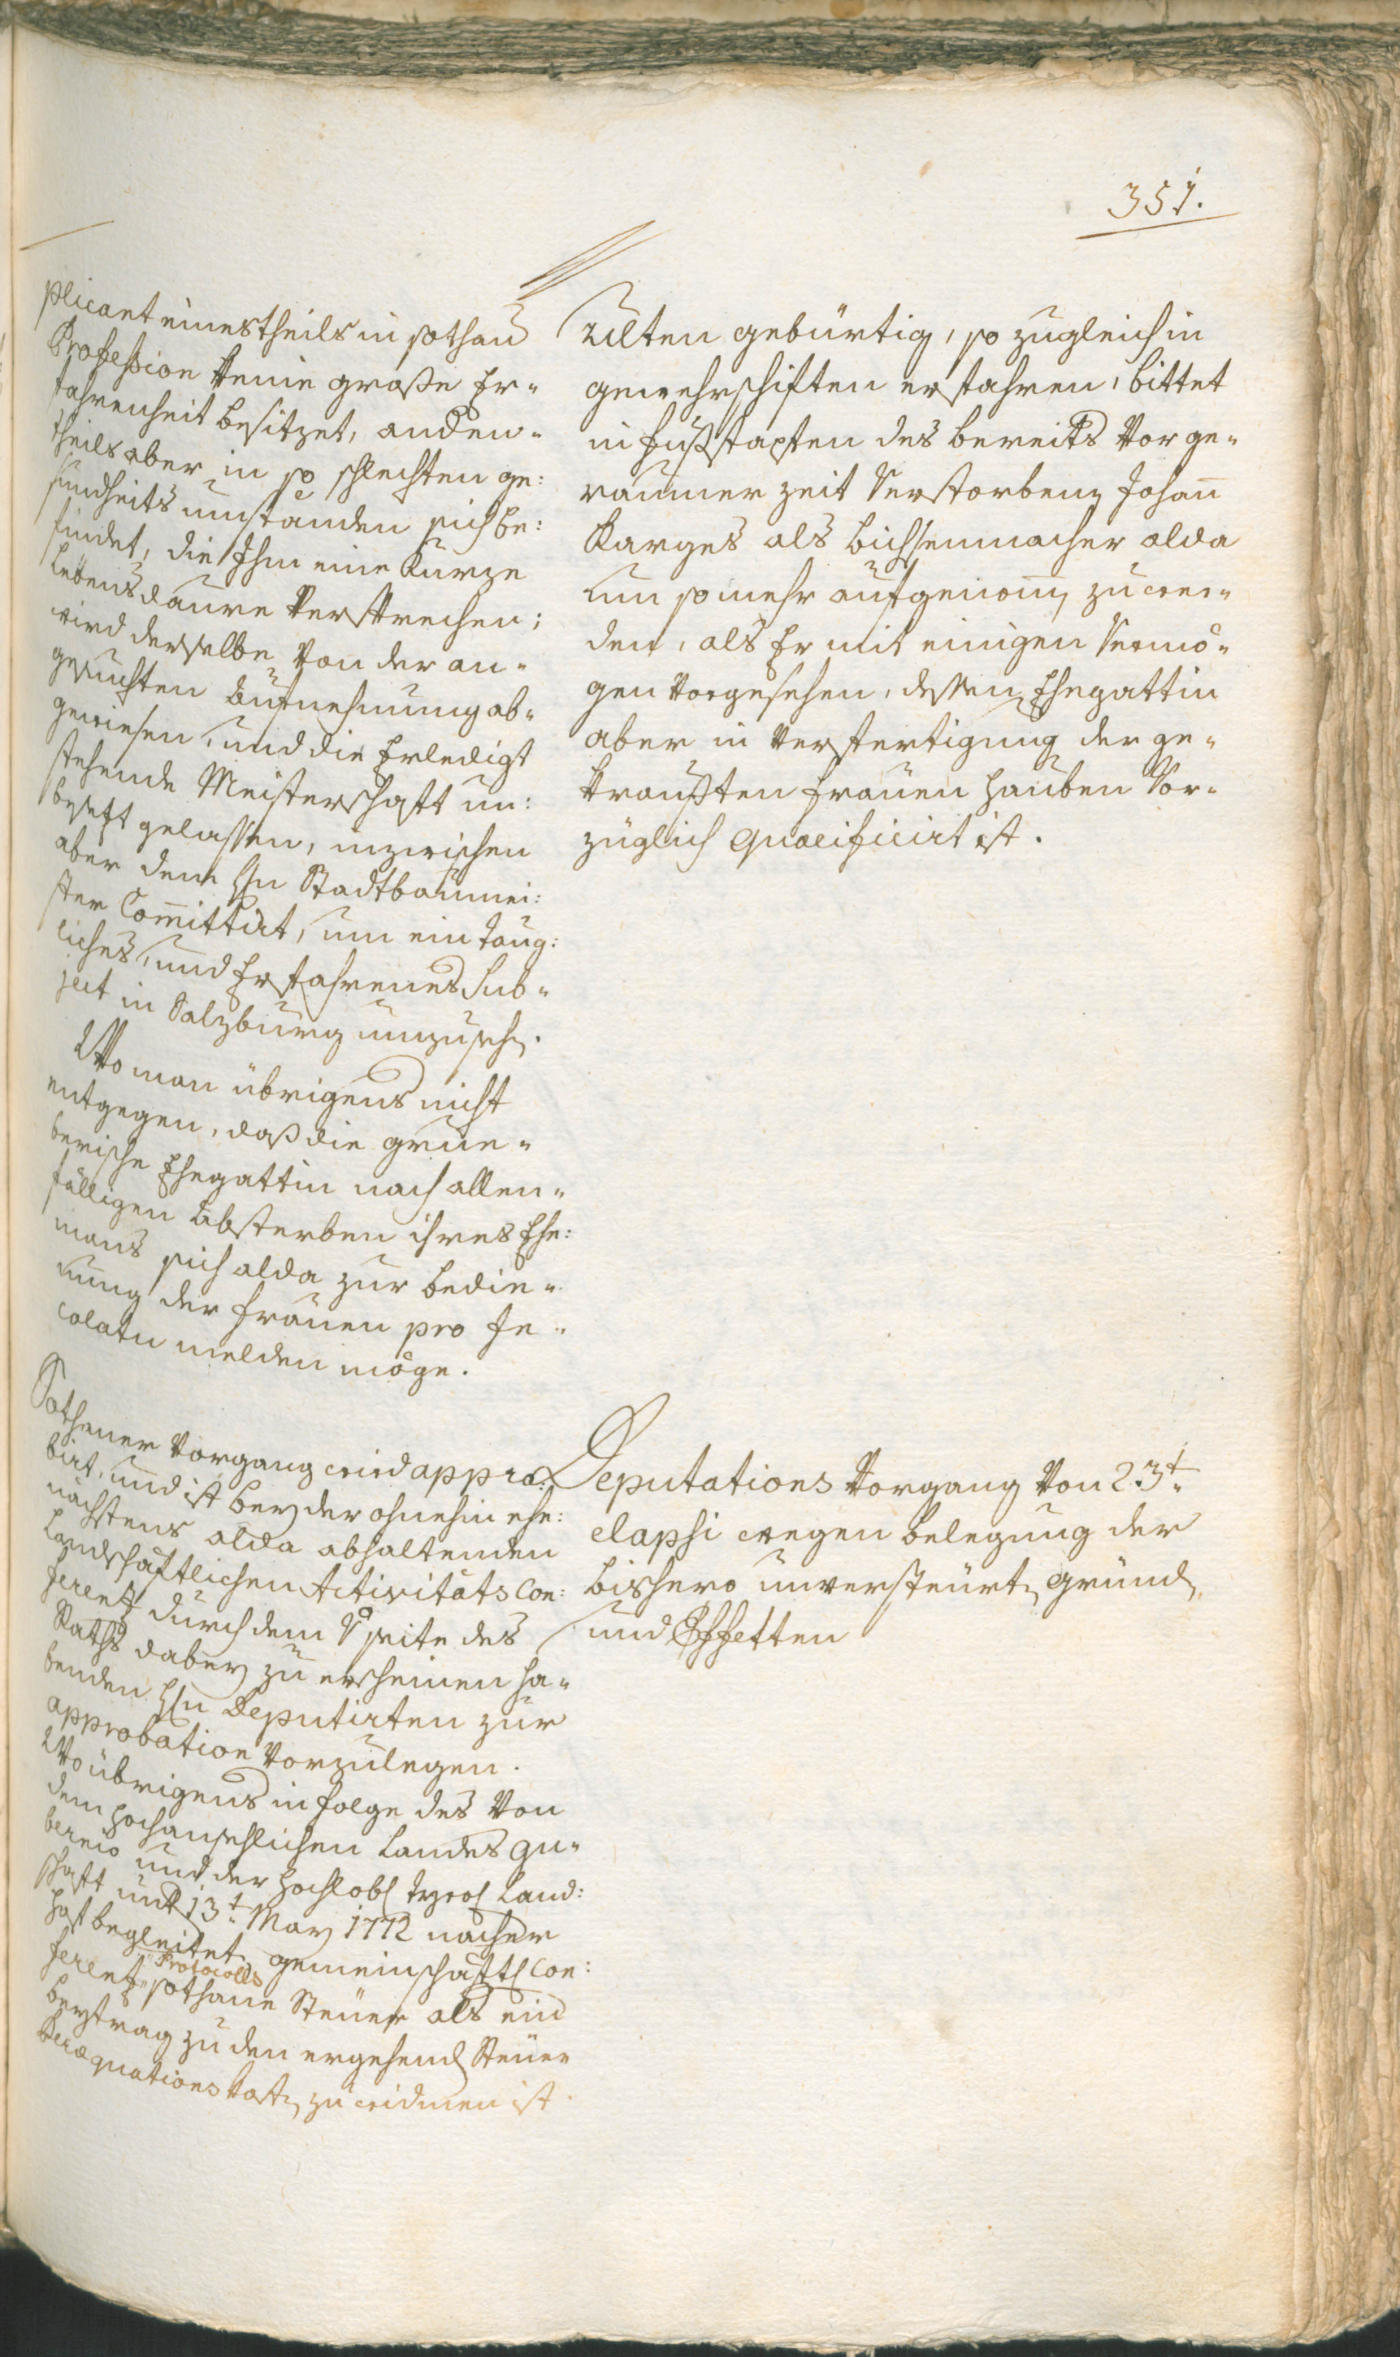 351.
plicant einestheils in sothan
Profeßion keine große Er-
fahrenheit besitzet, andern-
theils aber in so schlechten ge:
sundheits umständen sich be:
findet, die Ihm eine kurze
Lebens daure versprechen;
wird derselbe von der an-
gesuchten Aufnehmung ab-
gewiesen, und die Erledigt
stehende Meisterschaft un:
besezt gelassen, inzwischen
aber dem Hn Stadtbaumei:
ster Committirt, um ein taug:
liches, und Erfahrenes Sub-
ject in Salzburg umzusehen.
Wo man übrigens nicht
entgegen, daß die grue-
berische Ehegattin nach allen-
fälligen Absterben ihres Ehe:
mans sich alda zur bedie-
nung der frauen pro In-
colatu melden möge.
Sothaner Vorgang wird appro:
birt, und ist bey der ohnehin ehe:
nächstens alda abhaltenden
Landschäftlichen Activitäts Con:
ferenz durch dem Seite des
Raths dabey zu erscheinen ha-
benden Hn Deputirten zur
approbation vorzulegen.
Wo übrigens in folge des von
dem hochansehlichen Landes Gu-
bernio und der hochlobl tyrol Land:
schaft untr 13t May 1772 nacher
hof begleiteten gemeinschaftl Con:
ferenz Protocolls sothane Steuer als ein
beytrag zu den ergehend Steuer
Peræquations kosten zu widmen ist.
Zulten gebürtig, so zugleich in
gewehrschiften erfahren, bittet
in fußstapfen des bereits vor ge-
raumer zeit Verstorbenen Johan
Karges als bichsenmacher alda
um so mehr aufgenommen zu wer-
den, als Er mit einigen Vermö-
gen vorgesehen, dessen Ehegattin
aber in verfertigung der ge-
kraußten frauen hauben Vor-
züglich qualificirt ist.
Deputations Vorgang von 23t
elapsi wegen belegung der
bishero unversteurten gründ,
und Effecten